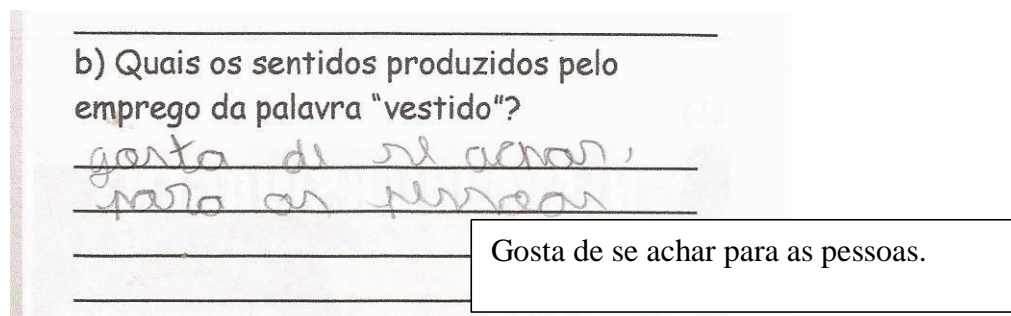 b) Quais os sentidos produzidos pelo
emprego da palavra "vestido"?
gosta de se achar,
para as pessoas
Gosta de se achar para as pessoas.